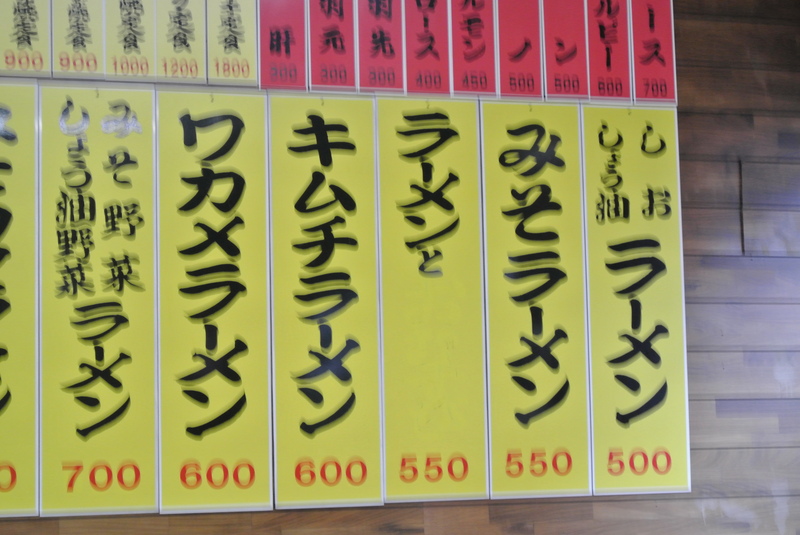 700
ース
800
ルビー
500
ン
500
ノ
450
ルモン
400
ロース
300
先
300
元
300
肝
1800
定食
1200
定食
1000
焼定食
900
焼定食
900
焼定食
しお
しょう油
ラーメン
500
みそラーメン
550
ラーメンと
550
キムチラーメン
600
ワカメラーメン
600
みそ野菜
しょう油野菜
ラーメン
700